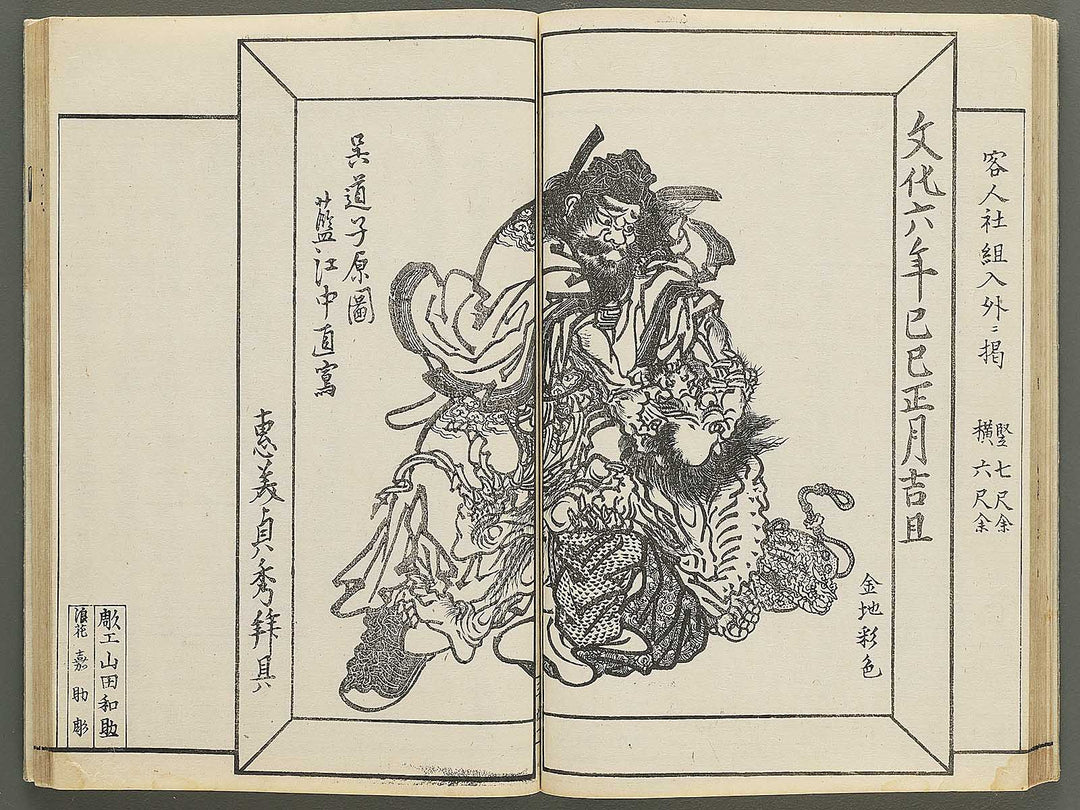 客人社組入外ニ掲
竪七尺余
横六尺余
文化六年己巳正月吉旦
金地彩色
呉道子原圖
藍江中直寫
惠美貞秀拜具
彫工山田和助
浪花嘉助彫